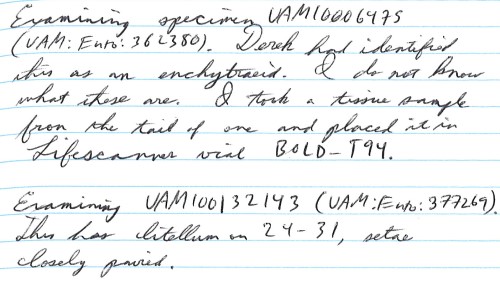 Examining specimen UAM10006475
(UAM:Ento:362380). Derek had identified
this as an enchytraeid. I do not know
what these are. I took a tissue sample
from the tail of one and placed it in
Lifescanner vial BOLD-T94.
Examining UAM100132143 (UAM:Ento:377269).
This has clitellum on 24-31, setae
closely paired.